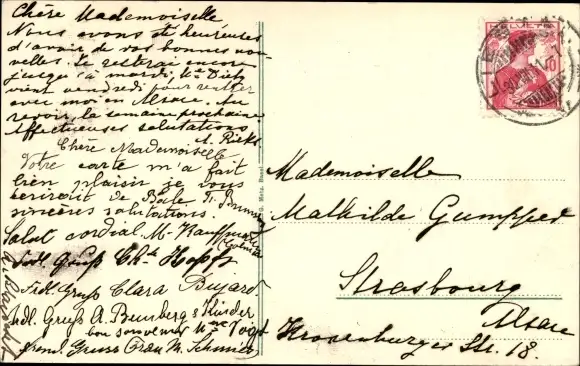 Chère Mademoiselle
Nous avons été heureuses
d'avoir de vos bonnes nou-
velles. Je resterai encore
jusqu'à mardi, Mme Dietz
vient vendredi pour rentrer
avec moi en Alsace. Au
revoir la semaine prochaine
Affectueuses salutations
A. Ricks
Chère Mademoiselle
Votre carte m'a fait
bien plaisir je vous
écrirait de Bâle
sincères salutations.
Salut cordial M. Kauffmann
(Colmar)
Frdl. Gruß Ch. Hopff
Frdl. Gruß Clara Dujard.
Frdl. Gruß A. Bemberg & Kinder
bon souvenir Mme Vogt
freundl. Gruss Frau M. Schmid
Metz, Basel
HELVETIA
10
Mademoiselle
Mathilde Gumpper
Strasbourg
Alsace
Kronenburger Str. 18.